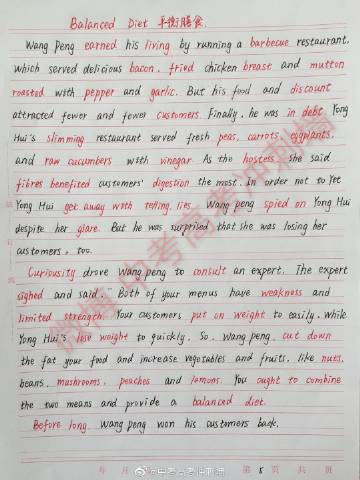 Balanced Diet 平衡膳食.
Wang Peng earned his living by running a barbecue restaurant,
which served delicious bacon, fried chicken breast and mutton
roasted with pepper and garlic. But his food and discount
attracted fewer and fewer customers. Finally, he was in debt. Yong
Hui's slimming restaurant served fresh peas, carrots, eggplants,
and raw cucumbers with vinegar. As the hostess, she said
fibres benefited customers' digestion the most. In order not to Yet
Yong Hui get away with telling lies, Wang peng spied on Yong Hui
despite her glare. But he was surprised that she was losing her
customers, too.
Curiosity drove Wang peng to consult an expert. The expert
sighed and said, Both of your menus have weakness and
limited strength. Your customers put on weight to easily, while
Yong Hui's lose weight to quickly. So, Wang peng, cut down
the fat your food and increase vegetables and fruits, like nuts,
beans, mushrooms, peaches and lemons. You ought to combine
the two means and provide a balanced diet.
Before long, Wang peng won his customers back.
年 月 第 5 页 共 页
微博:中考高考冲刺酒
@中考高考冲刺酒